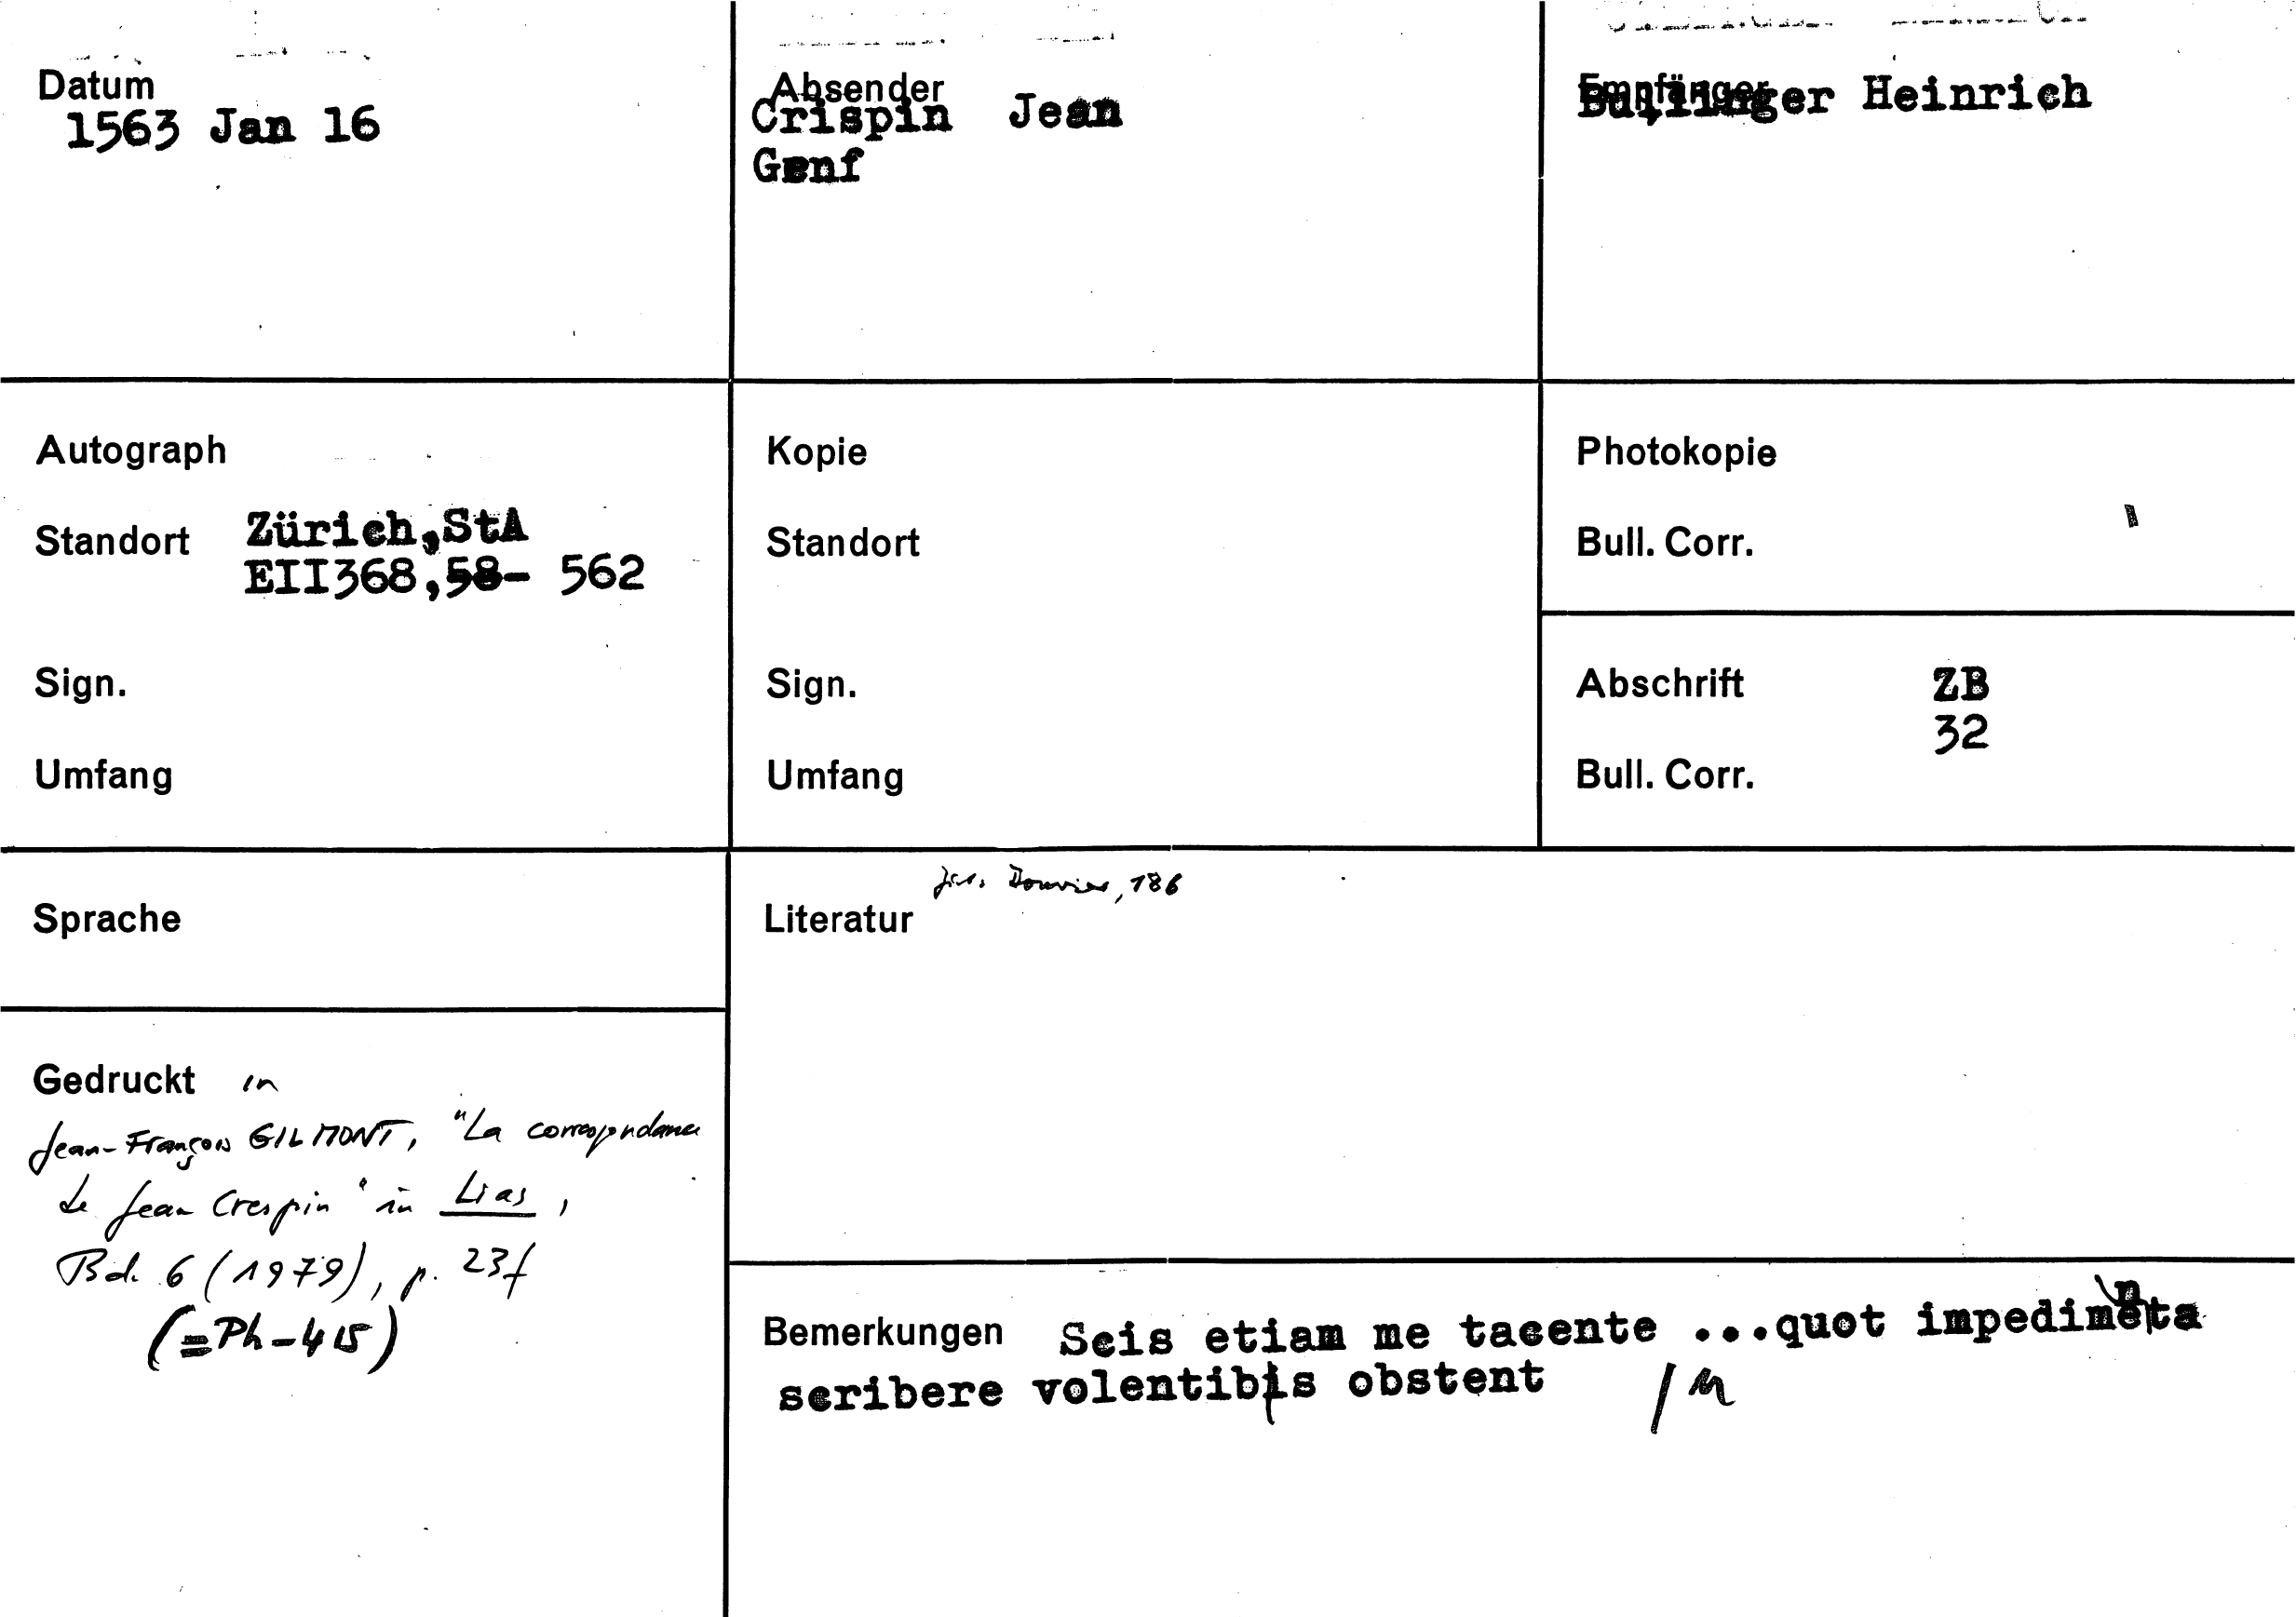 Datum
1563 Jan 16
Absender
Crispin Jean
Genf
Empfänger
Bullinger Heinrich
Autograph
Standort Zürich,StA
EII368,58- 562
Sign.
Umfang
Kopie
Standort
Sign.
Umfang
Photokopie
Bull. Corr.
Abschrift ZB
32
Bull. Corr.
Sprache
Literatur
186
Gedruckt in
Jean-François GILMONT, "La correspondance
de Jean Crespin" in Lias,
Bd. 6 (1979), p. 23f
(=Ph-415)
Bemerkungen Scis etiam me tacente ...quot impedimenta
scribere volentibis obstent /u